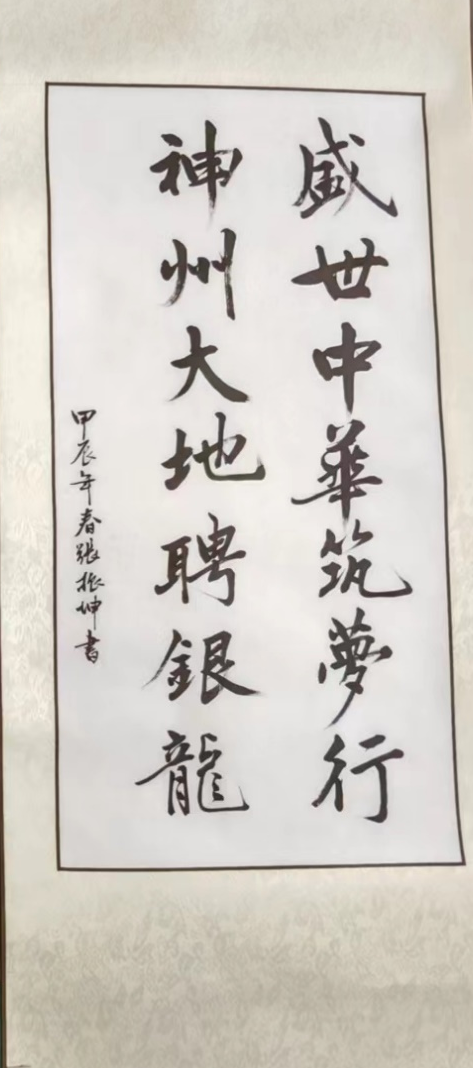 盛世中華筑夢行
神州大地聘銀龍
甲辰年春張振坤書